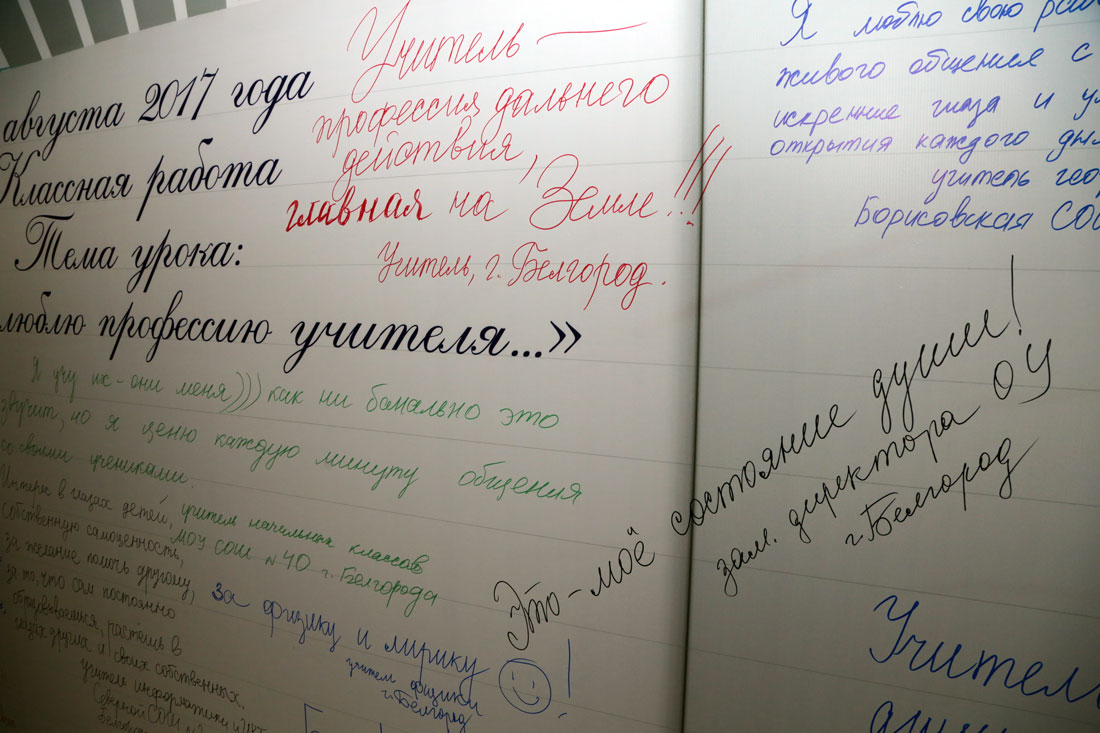 августа 2017 года
Классная работа
Тема урока:
люблю профессию учителя...»
Учитель —
профессия дальнего
действия,
главная на Земле!!!
Учитель, г. Белгород.
Я люблю свою
живого общения с
искренние глаза и
открытия каждого
учитель
Борисовская СОШ
Я учу их - они меня))) как ни банально это
звучит, но я ценю каждую минуту общения
со своими учениками.
учитель начальных классов
МОУ СОШ №40 г. Белгорода
Интерес в глазах детей,
собственную самоценность,
за желание помочь другому,
за то, что сам постоянно
растёшь в
глазах друга и своих собственных.
учитель информатики и ИКТ
Северной СОШ
за физику и лирику
учитель физики
г. Белгород
Это - моё состояние души!
зам. директора ОУ
г. Белгород
Учитель